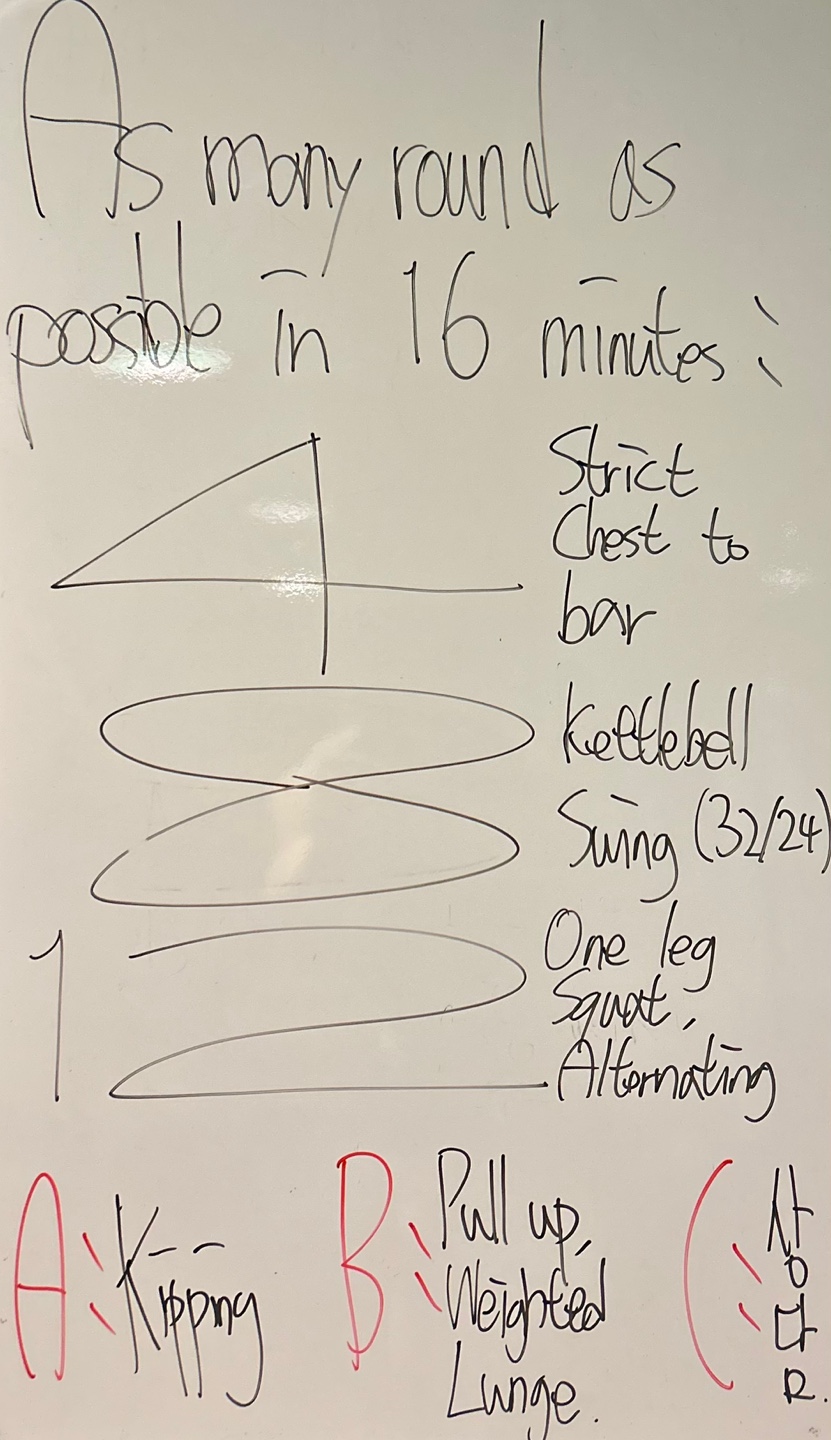 As many round as
possible in 16 minutes:
4 Strict
Chest to
bar
8 Kettlebell
Swing (32/24)
12 One leg
Squat,
Alternating
A: Kipping
B: Pull up,
Weighted
Lunge.
C: 상담.